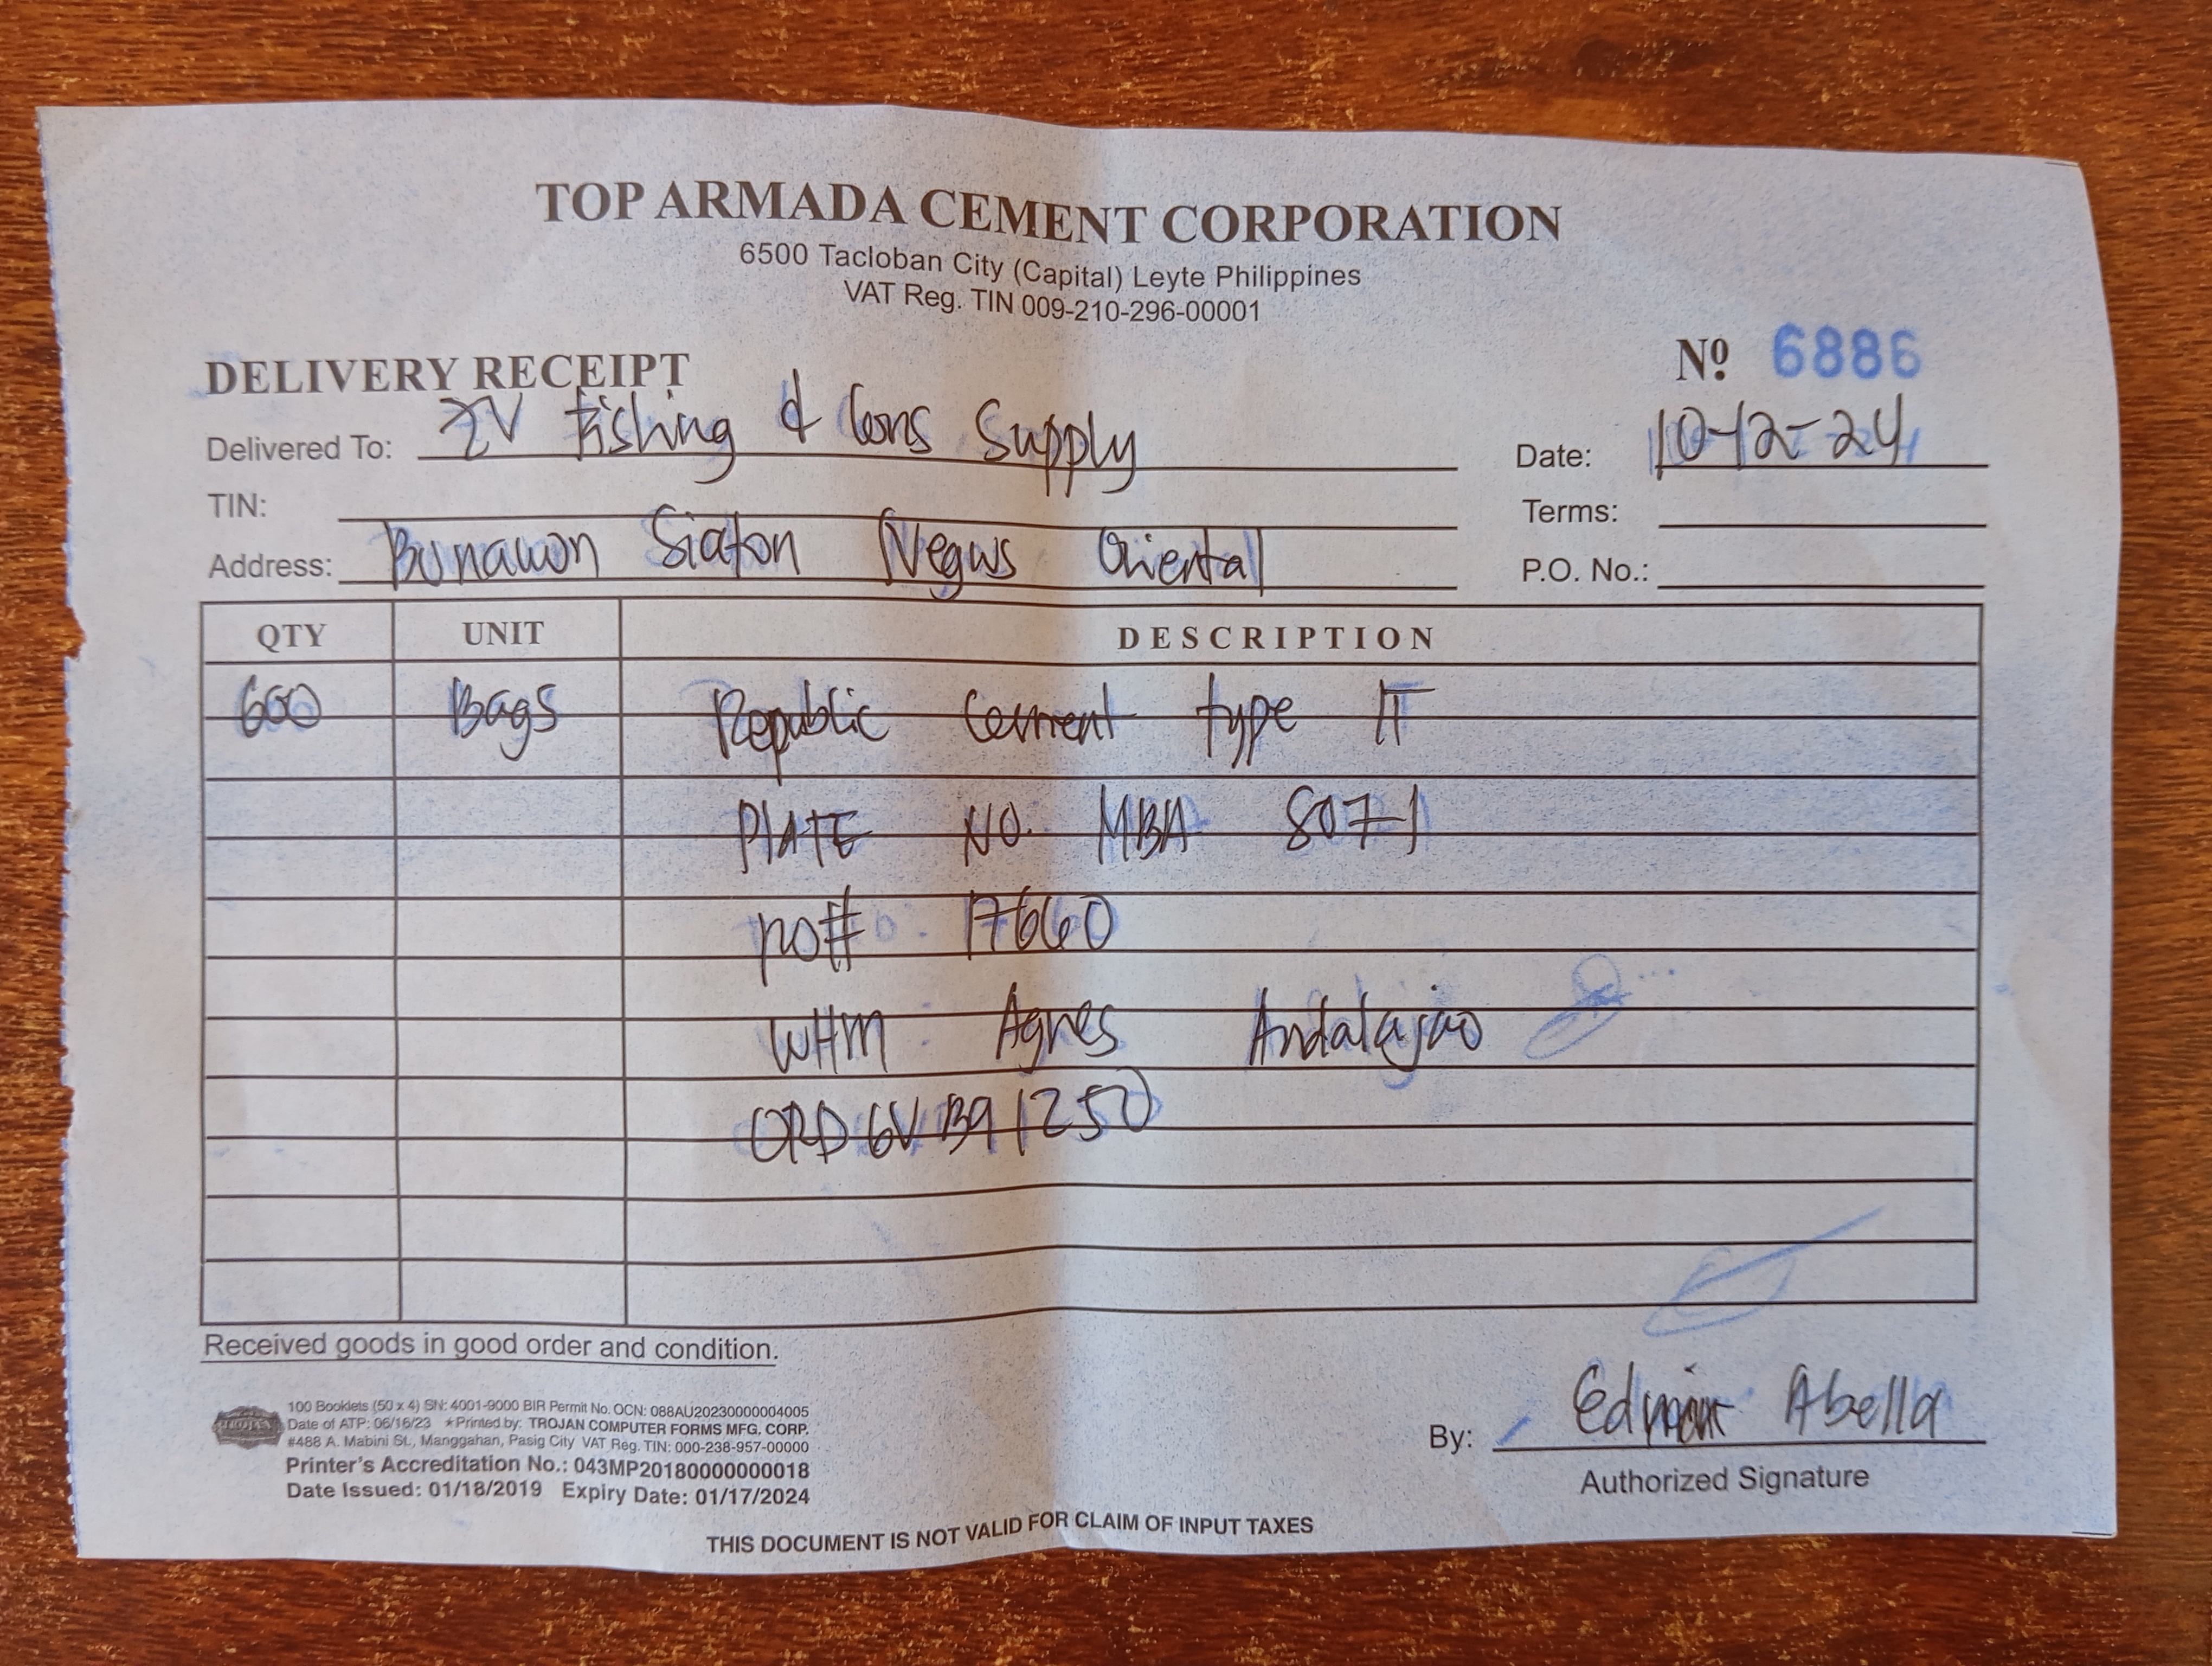 TOP ARMADA CEMENT CORPORATION
6500 Tacloban City (Capital) Leyte Philippines
VAT Reg. TIN 009-210-296-00001
DELIVERY RECEIPT
Nº 6886
Delivered To: ZV Fishing & Cons Supply
Date: 10-12-24
TIN:
Terms:
Address: Bonawon Siaton Negros Oriental
P.O. No.:
QTY UNIT DESCRIPTION
600 Bags Republic Cement type IT
PLATE NO. MBA 8071
po# 17660
WHM Agnes Andalajao
ORD6VB91250
Received goods in good order and condition.
100 Booklets (50 x 4) SN: 4001-9000 BIR Permit No. OCN: 088AU20230000004005
Date of ATP: 06/16/23 *Printed by: TROJAN COMPUTER FORMS MFG. CORP.
#488 A. Mabini St., Manggahan, Pasig City VAT Reg. TIN: 000-238-957-00000
Printer's Accreditation No.: 043MP20180000000018
Date Issued: 01/18/2019 Expiry Date: 01/17/2024
By: Abella
Authorized Signature
THIS DOCUMENT IS NOT VALID FOR CLAIM OF INPUT TAXES